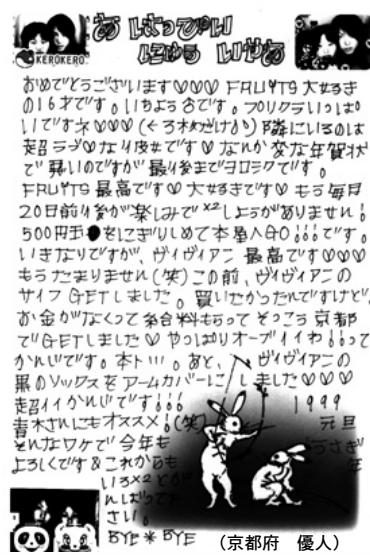 あ はっぴぃ
にゅう いやあ
KEROKERO
おめでとうございます♡♡♡ FRUiTS大好き
の16才です。いちよう古です。プリクラいっぱ
いですネ♡♡♡(←3枚だけ 隣にいるのは
超ラブ♡な彼女です♡なんか変な年賀状
で 悪いのですが最後までヨロシクです。
FRUiTS最高です♡大好きです♡もう毎月
20日前後が楽しみで×2しょうがありません!
500円玉 をにぎりしめて本屋へGO!!!です。
いきなりですが、ヴィヴィアン最高です♡♡♡
もうたまりません(笑)この前、ヴィヴィアンの
サイフGETしました。買いたかったんですけど、
お金がなくって給料もらってそっこう京都
でGETしました♡やっぱりオーブイイわ!!って
かんじです。本ト…。あと、ヴィヴィアンの
黒のソックスをアームカバーにしました♡♡♡
超イイかんじです!!!
1999
青木さんにもオススメ!(笑)
元旦
そんなワケで今年も
うさぎ
年
よろしくです&これからも
いろ×2とが
んばって下
さい。
BYE*BYE
(京都府 優人)